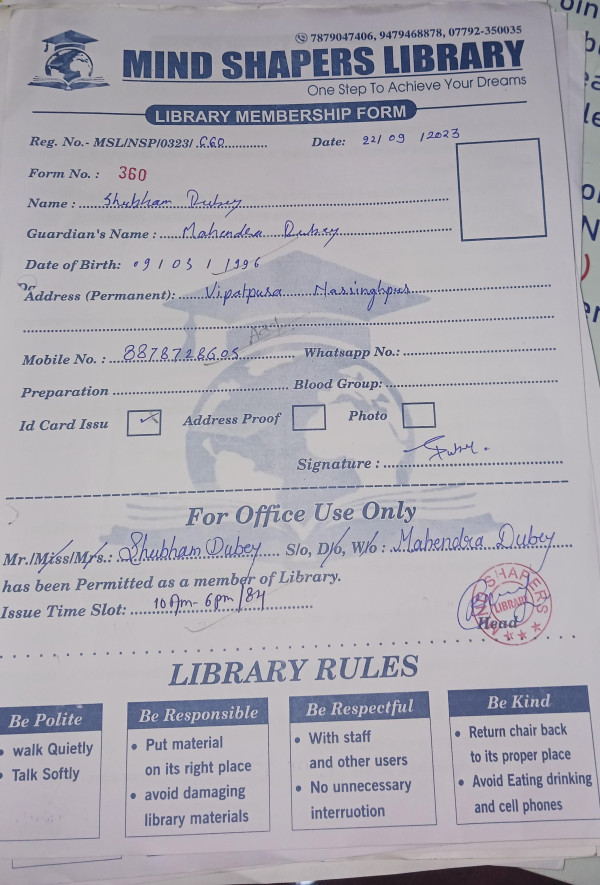 7879047406, 9479468878, 07792-350035
MIND SHAPERS LIBRARY
One Step To Achieve Your Dreams
LIBRARY MEMBERSHIP FORM
Reg. No.- MSL/NSP/0323/ Date: 22/09/2023
Form No. : 360
Name : Shubham Dubey
Guardian's Name : Mahendra Dubey
Date of Birth: 09/03/1996
Address (Permanent): Vipatpura Narsinghpur
Mobile No. : 8878728605 Whatsapp No.:
Preparation Blood Group:
Id Card Issu Address Proof Photo
Signature : Dubey.
For Office Use Only
Mr./Miss/Mrs.: Shubham Dubey S/o, D/o, W/o : Mahendra Dubey
has been Permitted as a member of Library.
Issue Time Slot: 10 Am- 6 pm /8H
MIND SHAPERS
LIBRARY
Head
LIBRARY RULES
Be Polite
• walk Quietly
• Talk Softly
Be Responsible
• Put material
on its right place
• avoid damaging
library materials
Be Respectful
• With staff
and other users
• No unnecessary
interruotion
Be Kind
• Return chair back
to its proper place
• Avoid Eating drinking
and cell phones